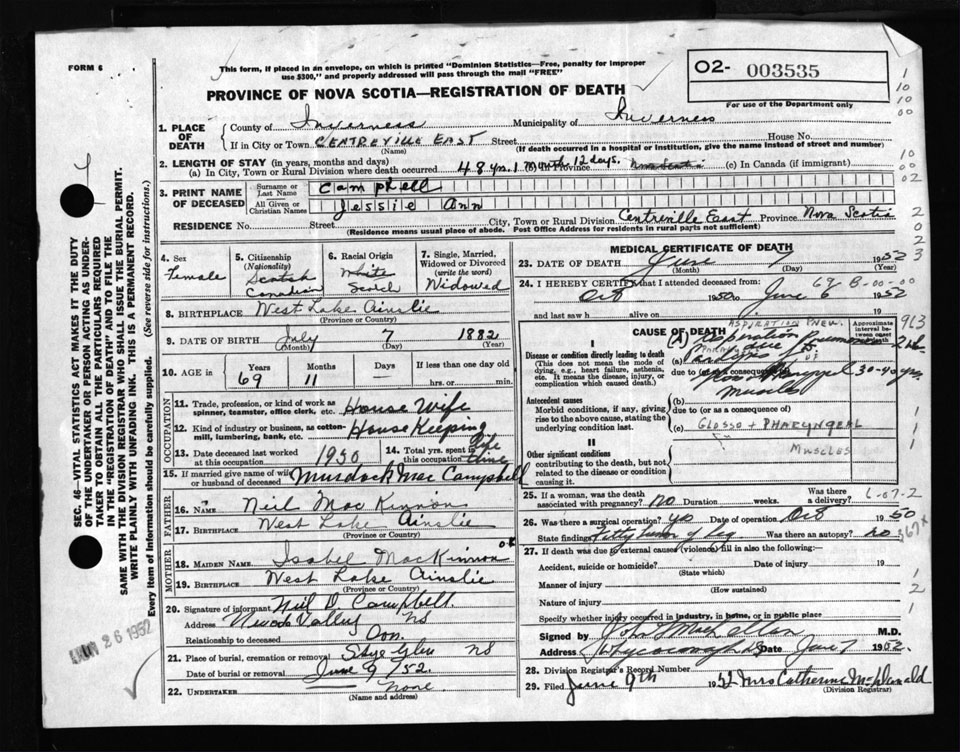 FORM 6
This form, if placed in an envelope, on which is printed "Dominion Statistics—Free, penalty for improper
use $300," and properly addressed will pass through the mail "FREE"
02- 003535
For use of the Department only
PROVINCE OF NOVA SCOTIA—REGISTRATION OF DEATH
1. PLACE OF DEATH
County of Inverness Municipality of Inverness
If in City or Town CENTREVILLE EAST Street House No.
(Name) (If death occurred in a hospital or institution, give the name instead of street and number)
2. LENGTH OF STAY (in years, months and days)
(a) In City, Town or Rural Division where death occurred 48 yrs. 1 month 12 days. (b) In Province Nova Scotia (c) In Canada (if immigrant)
3. PRINT NAME OF DECEASED
Surname or Last Name Campbell
All Given or Christian Names Jessie Ann
RESIDENCE No. Street City, Town or Rural Division Centreville East Province Nova Scotia
(Residence means usual place of abode. Post Office Address for residents in rural parts not sufficient)
4. Sex Female
5. Citizenship (Nationality) Scotch Canadian
6. Racial Origin White Scotch
7. Single, Married, Widowed or Divorced (write the word) Widowed
8. BIRTHPLACE West Lake Ainslie
(Province or Country)
9. DATE OF BIRTH July 7 1882
(Month) (Day) (Year)
10. AGE Years 69 Months 11 Days — If less than one day old
hrs. or min.
OCCUPATION
11. Trade, profession, or kind of work as spinner, teamster, office clerk, etc. House Wife
12. Kind of industry or business, as cotton-mill, lumbering, bank, etc. House Keeping
13. Date deceased last worked at this occupation 1950
14. Total yrs. spent in this occupation life time
15. If married give name of wife or husband of deceased Murdock Mac Campbell
FATHER
16. Name Neil Mac Kinnon
17. Birthplace West Lake Ainslie
(Province or Country)
MOTHER
18. MAIDEN NAME Isabel MacKinnon
19. BIRTHPLACE West Lake Ainslie
(Province or Country)
20. Signature of informant Neil D Campbell.
Address Nevada Valley NS
Relationship to deceased Son.
21. Place of burial, cremation or removal Skye Glen NS
Date of burial or removal June 9 / 52
22. UNDERTAKER None
(Name and address)
MEDICAL CERTIFICATE OF DEATH
23. DATE OF DEATH June 7 1952
(Month) (Day) (Year)
24. I HEREBY CERTIFY that I attended deceased from:
Oct 1950 to June 6 1952
and last saw h alive on 19
CAUSE OF DEATH
Approximate interval between onset and death
I
Disease or condition directly leading to death
(This does not mean the mode of dying, e.g., heart failure, asthenia, etc. It means the disease, injury, or complication which caused death.)
ASPIRATION PNEU.
(a) Aspiration Pneumonia
due to (or as a consequence of)
30-40 yrs.
Muscles
Antecedent causes
Morbid conditions, if any, giving rise to the above cause, stating the underlying condition last.
(b)
due to (or as a consequence of)
(c) GLOSSO + PHARYNGEAL
MUSCLES
II
Other significant conditions
contributing to the death, but not related to the disease or condition causing it.
25. If a woman, was the death associated with pregnancy? no Duration weeks. Was there a delivery?
26. Was there a surgical operation? yes Date of operation Oct 1950
State findings Fatty tumor of leg Was there an autopsy? no
27. If death was due to external causes (violence) fill in also the following:—
Accident, suicide or homicide? Date of injury 19
(State which)
Manner of injury
(How sustained)
Nature of injury
Specify whether injury occurred in industry, in home, or in public place
Signed by M.D.
Address Whycocomagh NS Date June 7 1952.
28. Division Registrar's Record Number
29. Filed June 9th 1952 Mrs Catherine McDonald
(Division Registrar)
SEC. 46—VITAL STATISTICS ACT MAKES IT THE DUTY
OF THE UNDERTAKER OR PERSON ACTING AS UNDERTAKER TO OBTAIN ALL THE PARTICULARS REQUIRED
IN THE "REGISTRATION OF DEATH" AND TO FILE THE
SAME WITH THE DIVISION REGISTRAR WHO SHALL ISSUE THE BURIAL PERMIT.
WRITE PLAINLY WITH UNFADING INK. THIS IS A PERMANENT RECORD.
Every item of Information should be carefully supplied. (See reverse side for instructions.)
JUN 26 1952